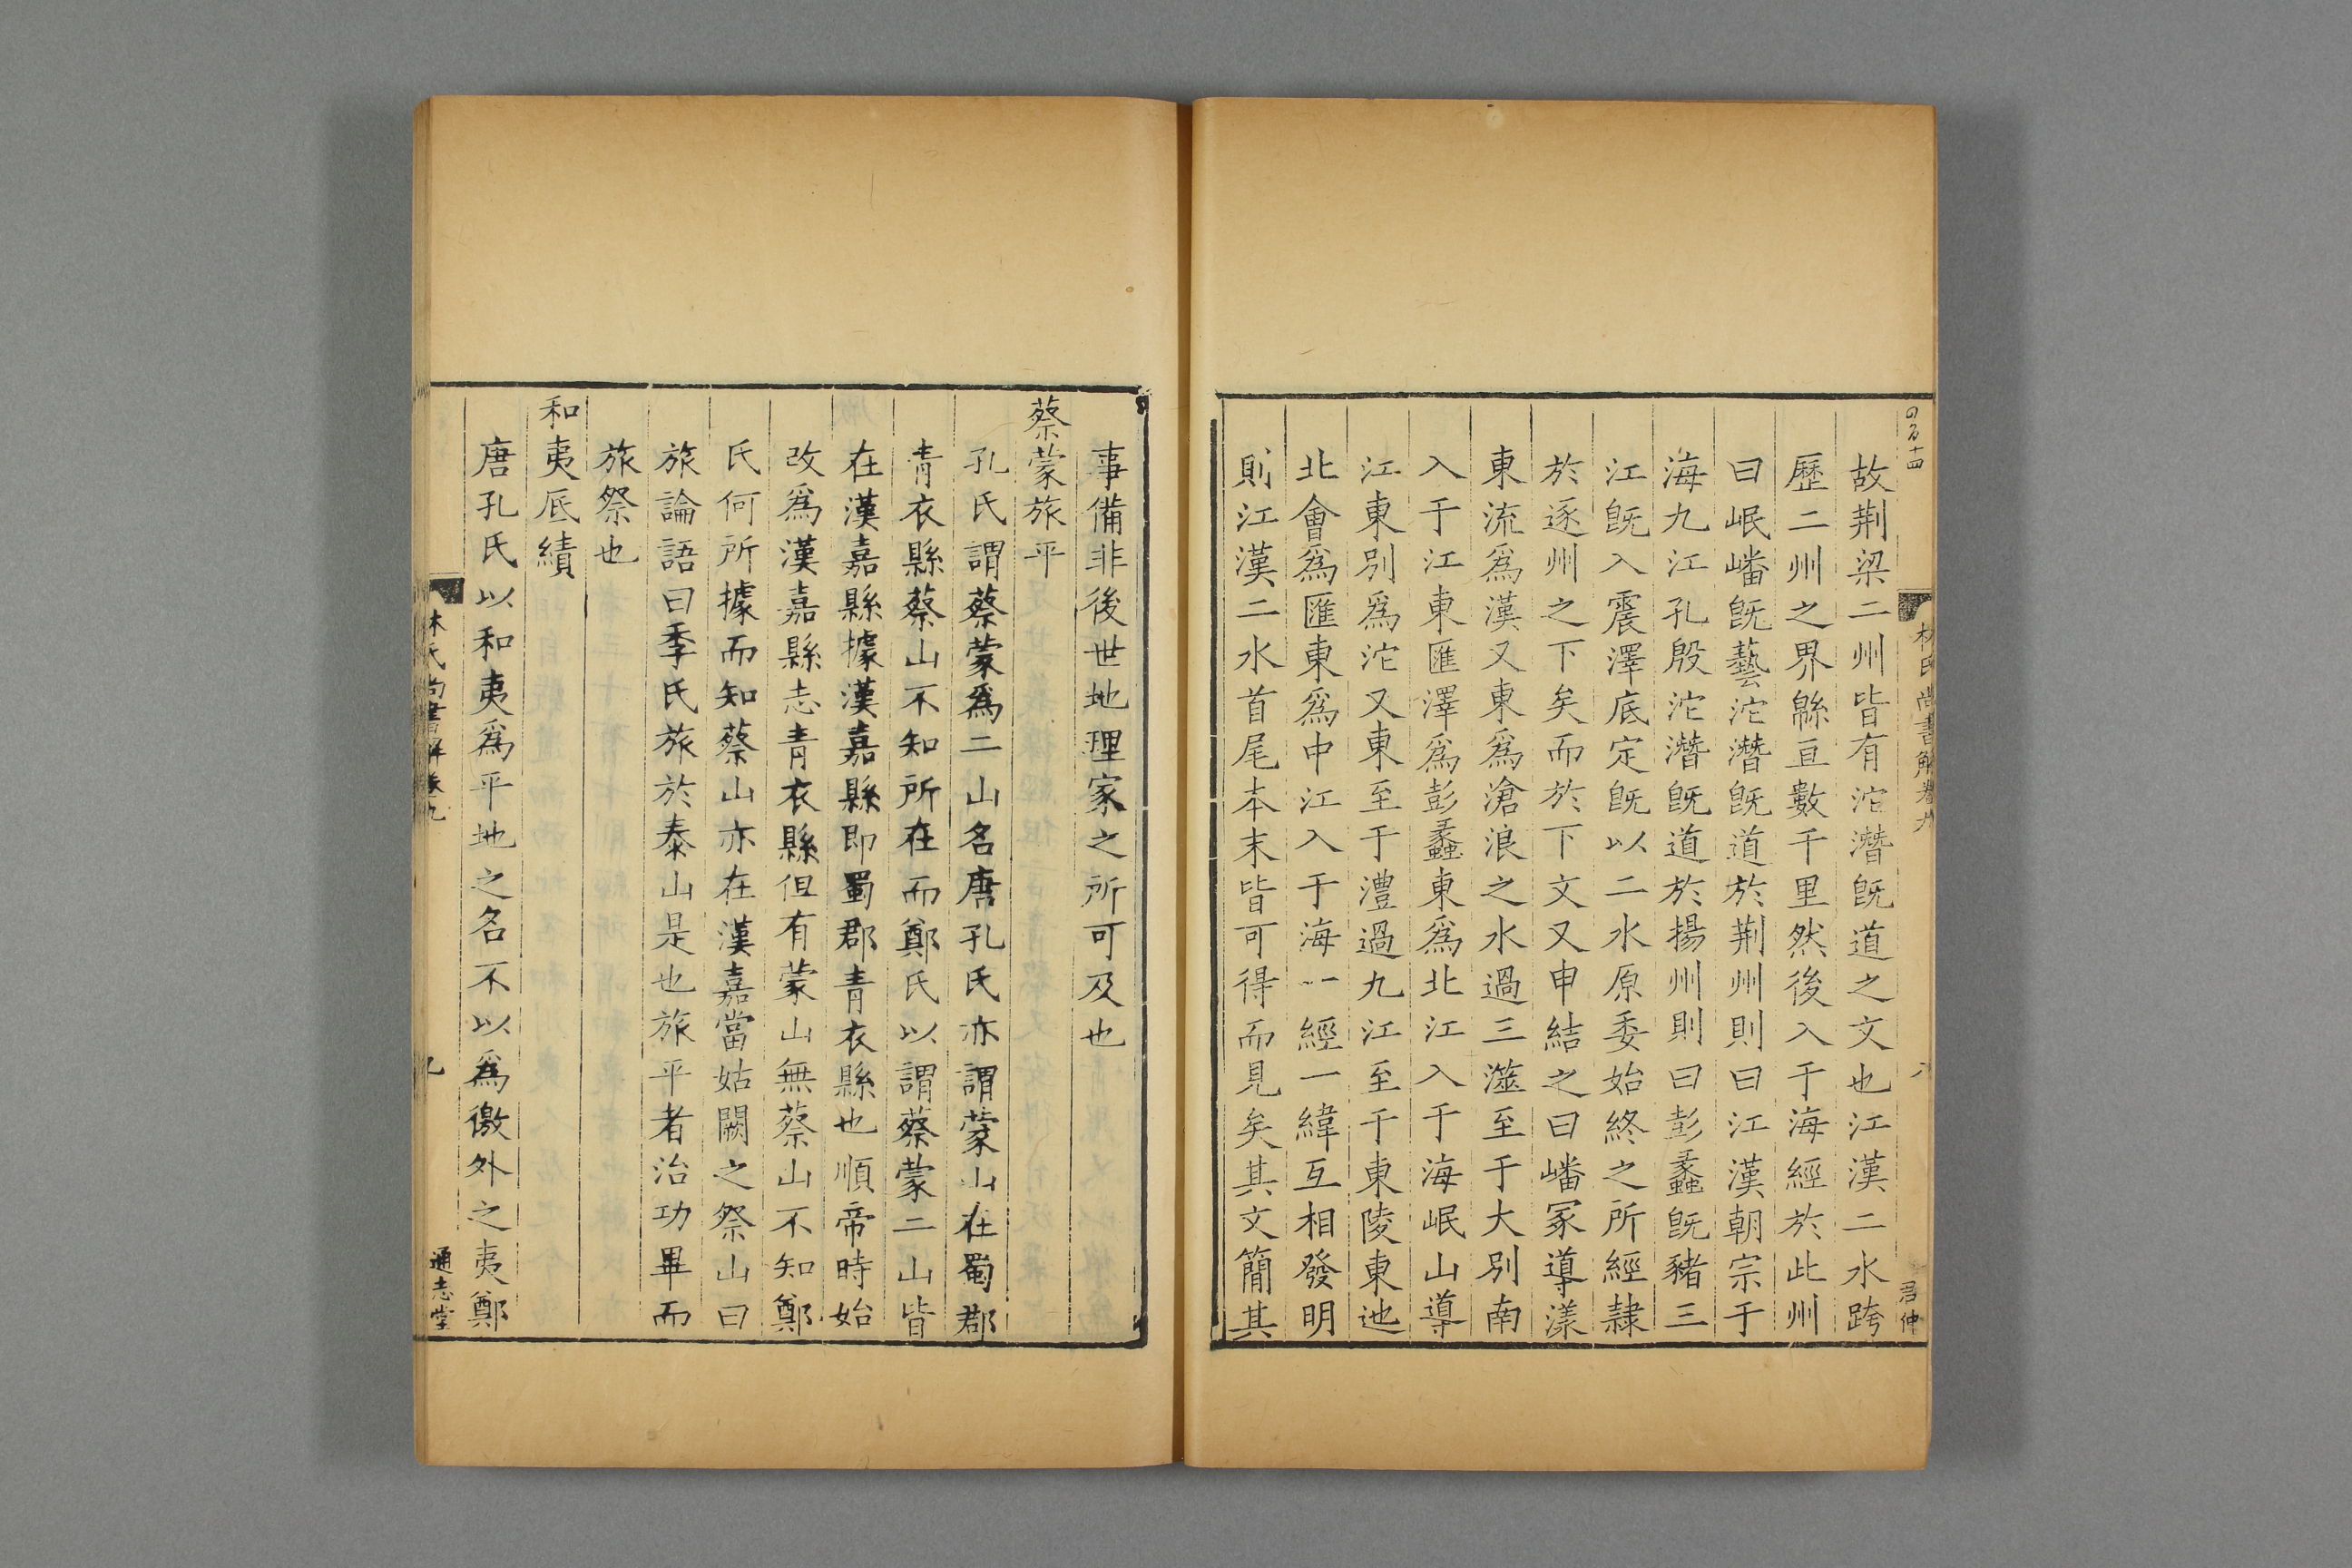 林氏尚書解卷九
八
君仲
故荆梁二州皆有沱潛旣道之文也江漢二水跨
歷二州之界緜亘數千里然後入于海經於此州
曰岷嶓旣藝沱潛旣道於荆州則曰江漢朝宗于
海九江孔殷沱潛旣道於揚州則曰彭蠡旣豬三
江旣入震澤底定旣以二水原委始終之所經隸
於逐州之下矣而於下文又申結之曰嶓冢導漾
東流爲漢又東爲滄浪之水過三澨至于大別南
入于江東匯澤爲彭蠡東爲北江入于海岷山導
江東別爲沱又東至于澧過九江至于東陵東迆
北會爲匯東爲中江入于海一經一緯互相發明
則江漢二水首尾本末皆可得而見矣其文簡其
事備非後世地理家之所可及也
蔡蒙旅平
孔氏謂蔡蒙爲二山名唐孔氏亦謂蒙山在蜀郡
青衣縣蔡山不知所在而鄭氏以謂蔡蒙二山皆
在漢嘉縣據漢嘉縣即蜀郡青衣縣也順帝時始
改爲漢嘉縣志青衣縣但有蒙山無蔡山不知鄭
氏何所據而知蔡山亦在漢嘉當姑闕之祭山曰
旅論語曰季氏旅於泰山是也旅平者治功畢而
旅祭也
和夷厎績
唐孔氏以和夷爲平地之名不以爲徼外之夷鄭
林氏尚書解卷九
九
通志堂